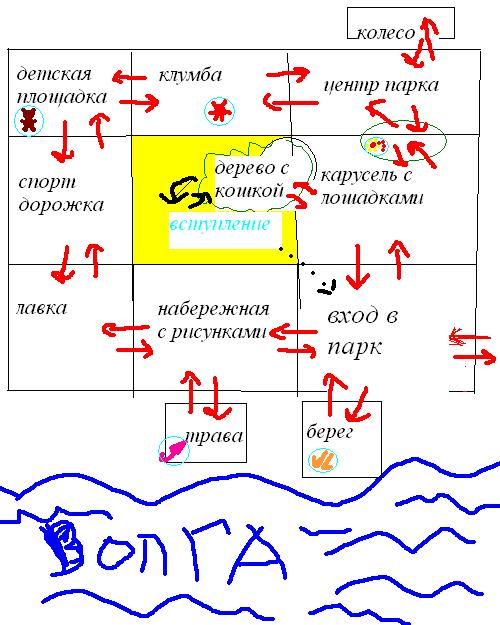 колесо
детская
площадка
клумба
центр парка
спорт
дорожка
дерево с
кошкой
карусель с
лошадками
вступление
лавка
набережная
с рисунками
вход в
парк
трава
берег
ВОЛГА